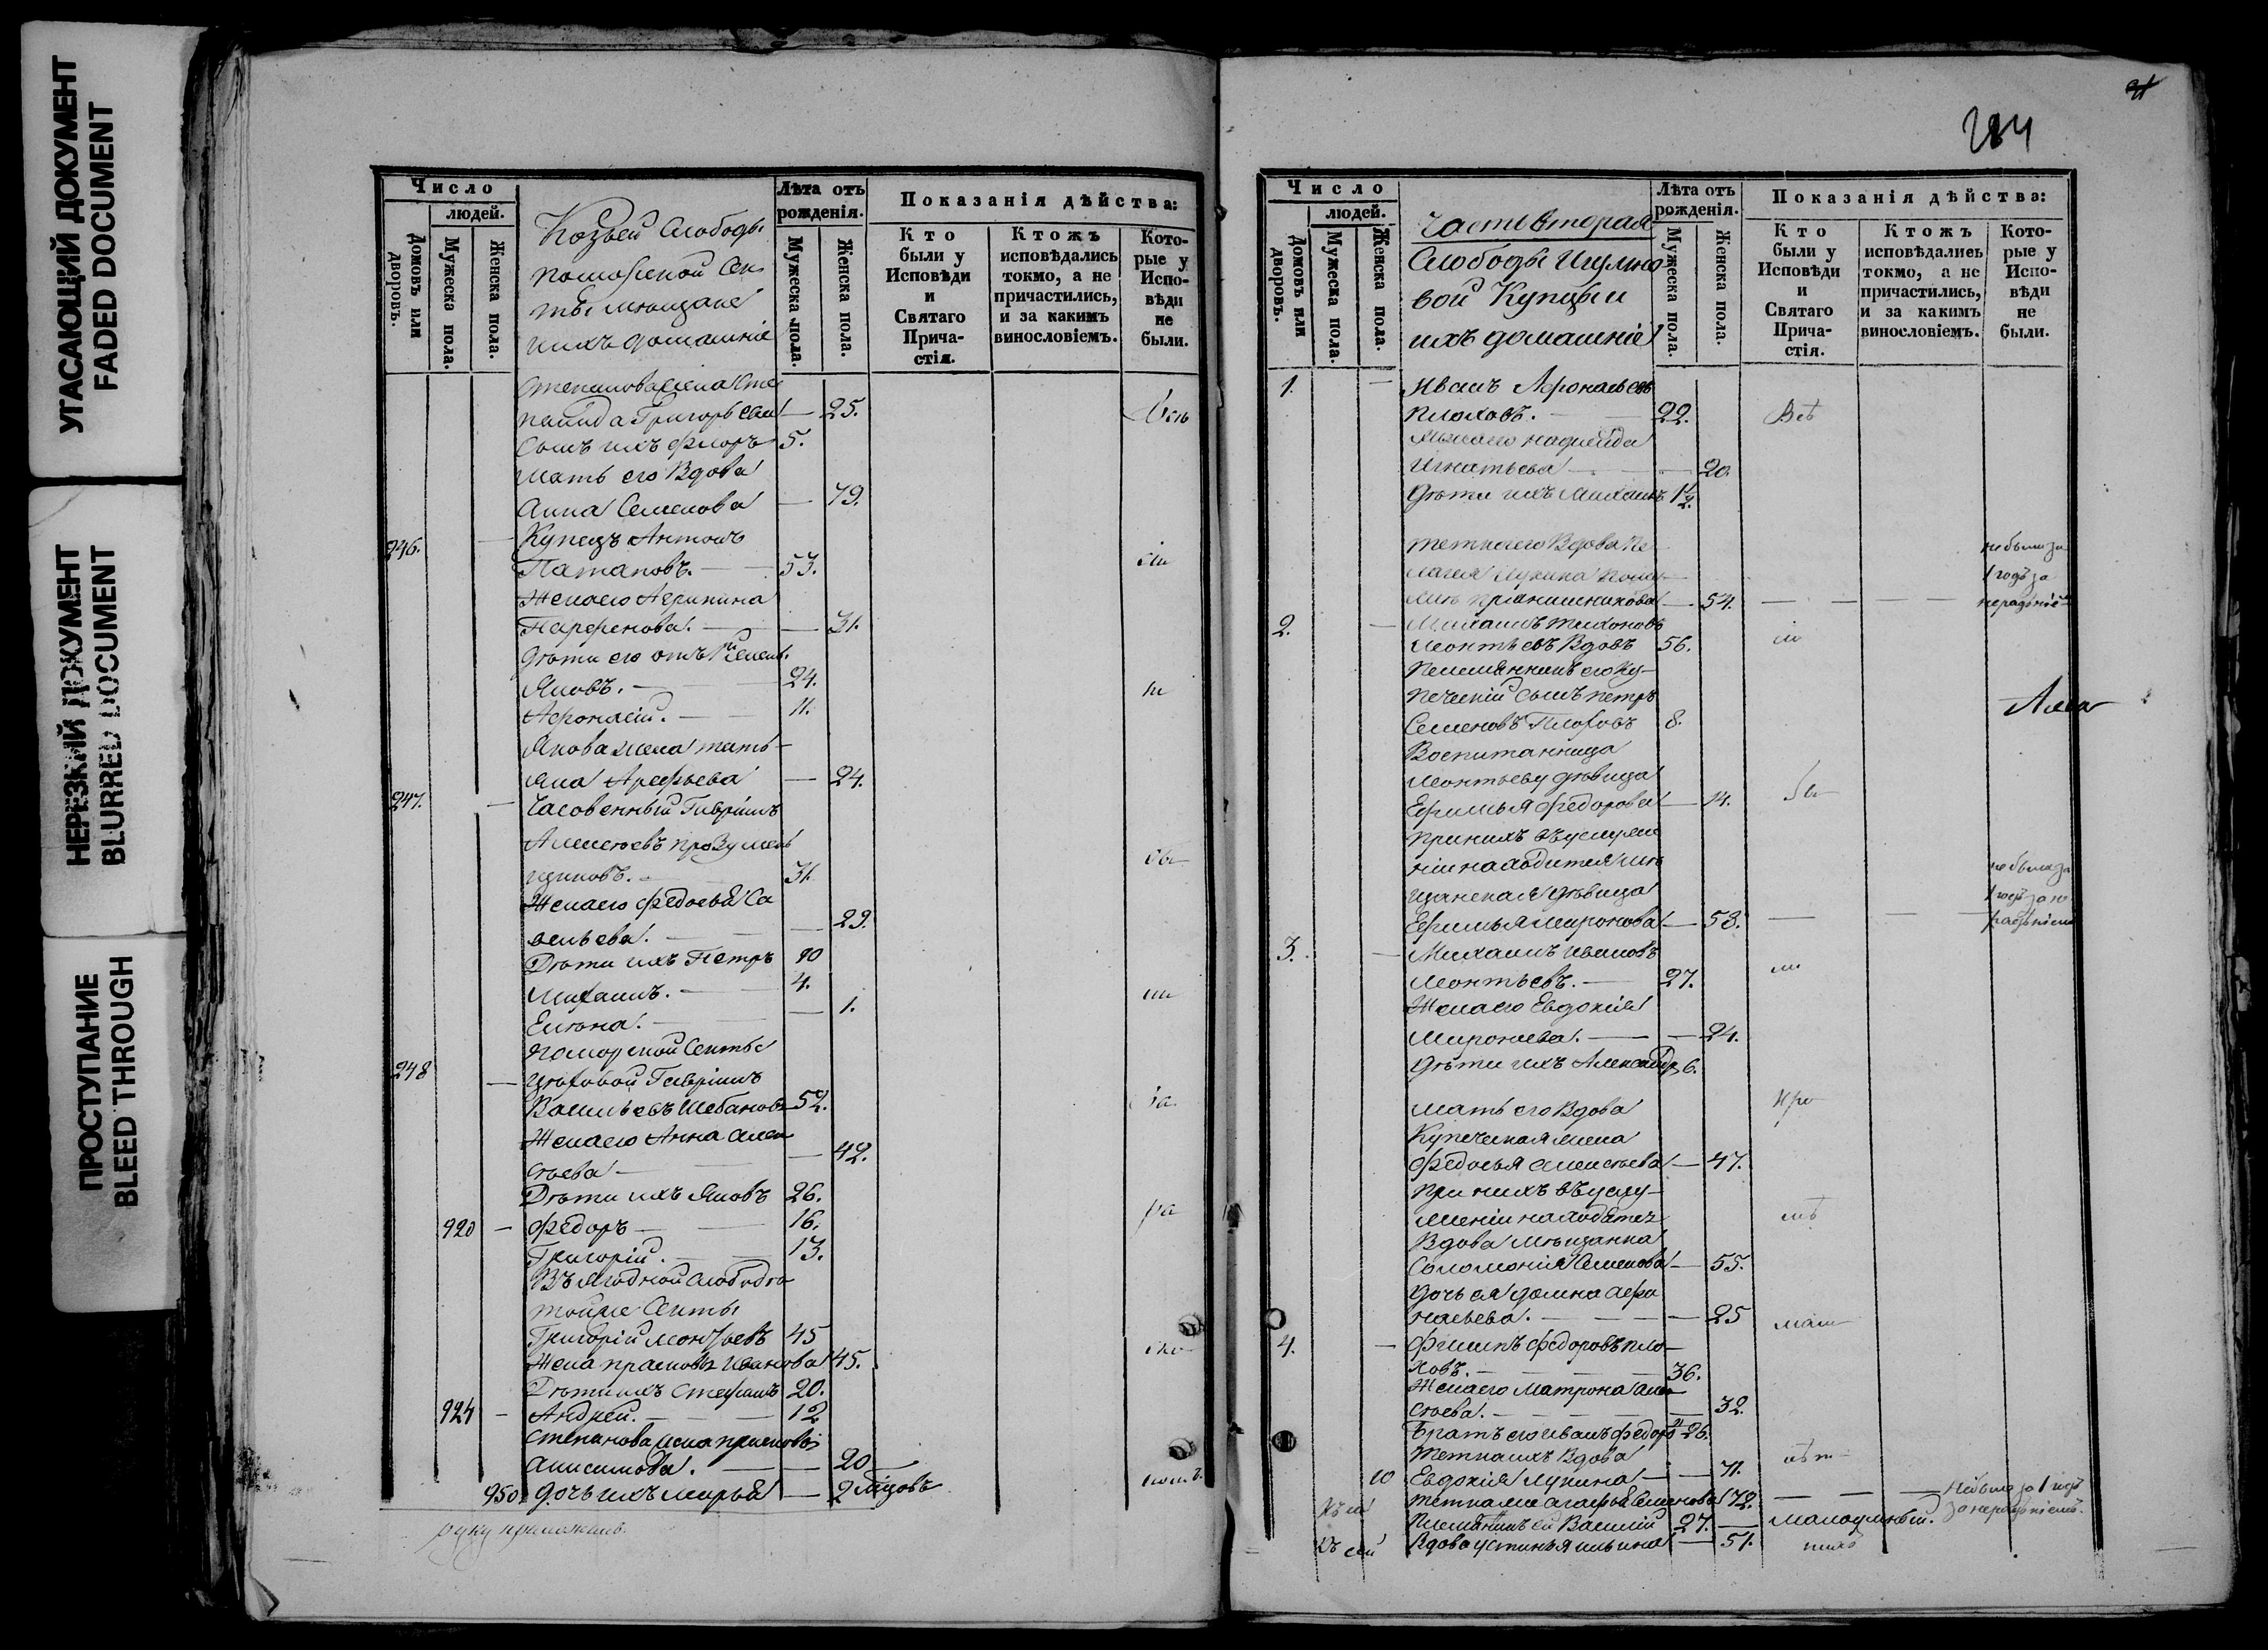 УГАСАЮЩИЙ ДОКУМЕНТ
FADED DOCUMENT
НЕРЕЗКИЙ ДОКУМЕНТ
BLURRED DOCUMENT
ПРОСТУПАНИЕ
BLEED THROUGH
Число
людей.
Домовъ или дворовъ.
Мужеска пола.
Женска пола.
Козьей Слободы
поморской Сек
ты мещане
ихъ домашние
Лѣта отъ рожденія.
Мужеска пола.
Женска пола.
Показанія дѣйства:
Кто были у Исповѣди и Святаго Причастія.
Ктожъ исповѣдались токмо, а не причастились, и за какимъ винословіемъ.
Которые у Исповѣди не были.
Степанова жена Сте
панида Григорьева — 25.
Сынъ ихъ Флоръ 5.
Мать его Вдова
Анна Семенова — 79.
246. — Купецъ Антонъ
Патаповъ. — 53.
Жена его Агрипина
Парфенова. — 31.
Дѣти его отъ 1й жены.
Яковъ. — 24.
Афонасій. — 11.
Якова жена Тать-
яна Арефьева — 24.
247. — Часовенный Гаврiилъ
Алексѣевъ
31.
Жена его Федосья Са
вельева. — 29.
Дѣти ихъ Петръ 10
Михаилъ. — 4.
Елена. — 1.
Поморской Секты
248 — Цеховой Гаврiилъ
Васильевъ Шебановъ 52.
Жена его Анна Алек
сѣева — 42.
Дѣти ихъ Яковъ 26.
920 — Федоръ — 16.
Григорій. — 13.
Въ Ягодной слободѣ
тойже Секты
Григорій Леонтьевъ 45
Жена Прасковья Иванова 45.
Дѣти ихъ Стефанъ 20.
924 — Андрей. — 12
Степанова жена Прасковья
Анисимова. — 20
950 дочь ихъ Марья — 2
руку приложилъ.
284
Число
людей.
Домовъ или дворовъ.
Мужеска пола.
Женска пола.
Часть вторая
Слободы Игумно
вой Купцы и
ихъ домашніе
Лѣта отъ рожденія.
Мужеска пола.
Женска пола.
Показанія дѣйства:
Кто были у Исповѣди и Святаго Причастія.
Ктожъ исповѣдались токмо, а не причастились, и за какимъ винословіемъ.
Которые у Исповѣди не были.
1. — Иванъ Афонасьевъ
Плоховъ. — 22. Всѣ
Жена его Надежда
Игнатьева — 20.
Дѣти ихъ Михаилъ 1/2.
Тетка его Вдова Пе-
лагея Лукина
Прянишникова — 54. — не была за 1 годъ за нерадѣніе
2. — Михаилъ Тихоновъ
Леонтьевъ Вдовъ 56.
Племянникъ его Ку-
печескій сынъ Петръ
Семеновъ Плоховъ 8.
Воспитанница
Леонтьеву дѣвица
Ефимья Федорова — 14.
При нихъ въ услуже
ніи находится мѣ
щанская дѣвица
Ефимья Миронова — 53. — не была за 1 годъ за не радѣніемъ
3. — Михаилъ Ивановъ
Леонтьевъ. — 27.
Жена его Евдокія
Миронова. — 24.
Дѣти ихъ Александръ 6.
Мать его Вдова
Купеческая жена
Федосья Алексѣева — 47.
При нихъ въ услу-
женіи находятся
Вдова мѣщанка
Соломонія Семенова — 55.
Дочь ея Домна Афо
насьева. — 25
4. — Филипъ Федоровъ Пло-
ховъ. — 36.
Жена его Матрона Алек
сѣева. — 32.
Братъ его Иванъ Федоровъ 26.
Тетка ихъ Вдова
10 Евдокія Лукина — 71.
Тетка же Агафья Семенова 72. — не была за 1 годъ за нерадѣніемъ.
Племянникъ ея Василій 27. —
Вдова Устинья Ильина — 51.